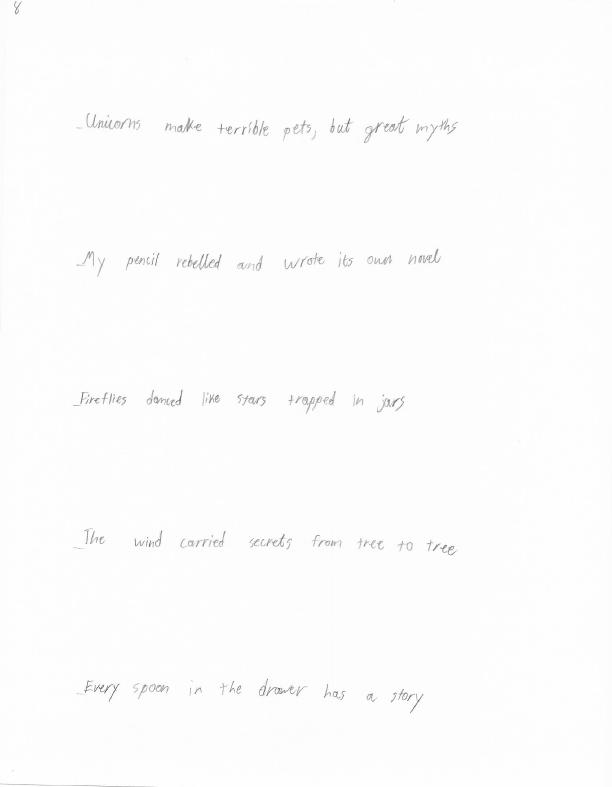 8
Unicorns make terrible pets, but great myths
My pencil rebelled and wrote its own novel
Fireflies danced like stars trapped in jars
The wind carried secrets from tree to tree
Every spoon in the drawer has a story